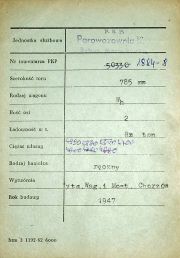 Jednostka służbowa
P K P
Parowozownia
Nr inwentarza PKP 59330 1864-8
Szerokość toru 785 mm
Rodzaj wagonu
Ilość osi 2
Ładowność w t. ton
Ciężar własny
Rodzaj hamulca ręczny
Wytwórnia Wag. i Most. Chorzów
Rok budowy 1947